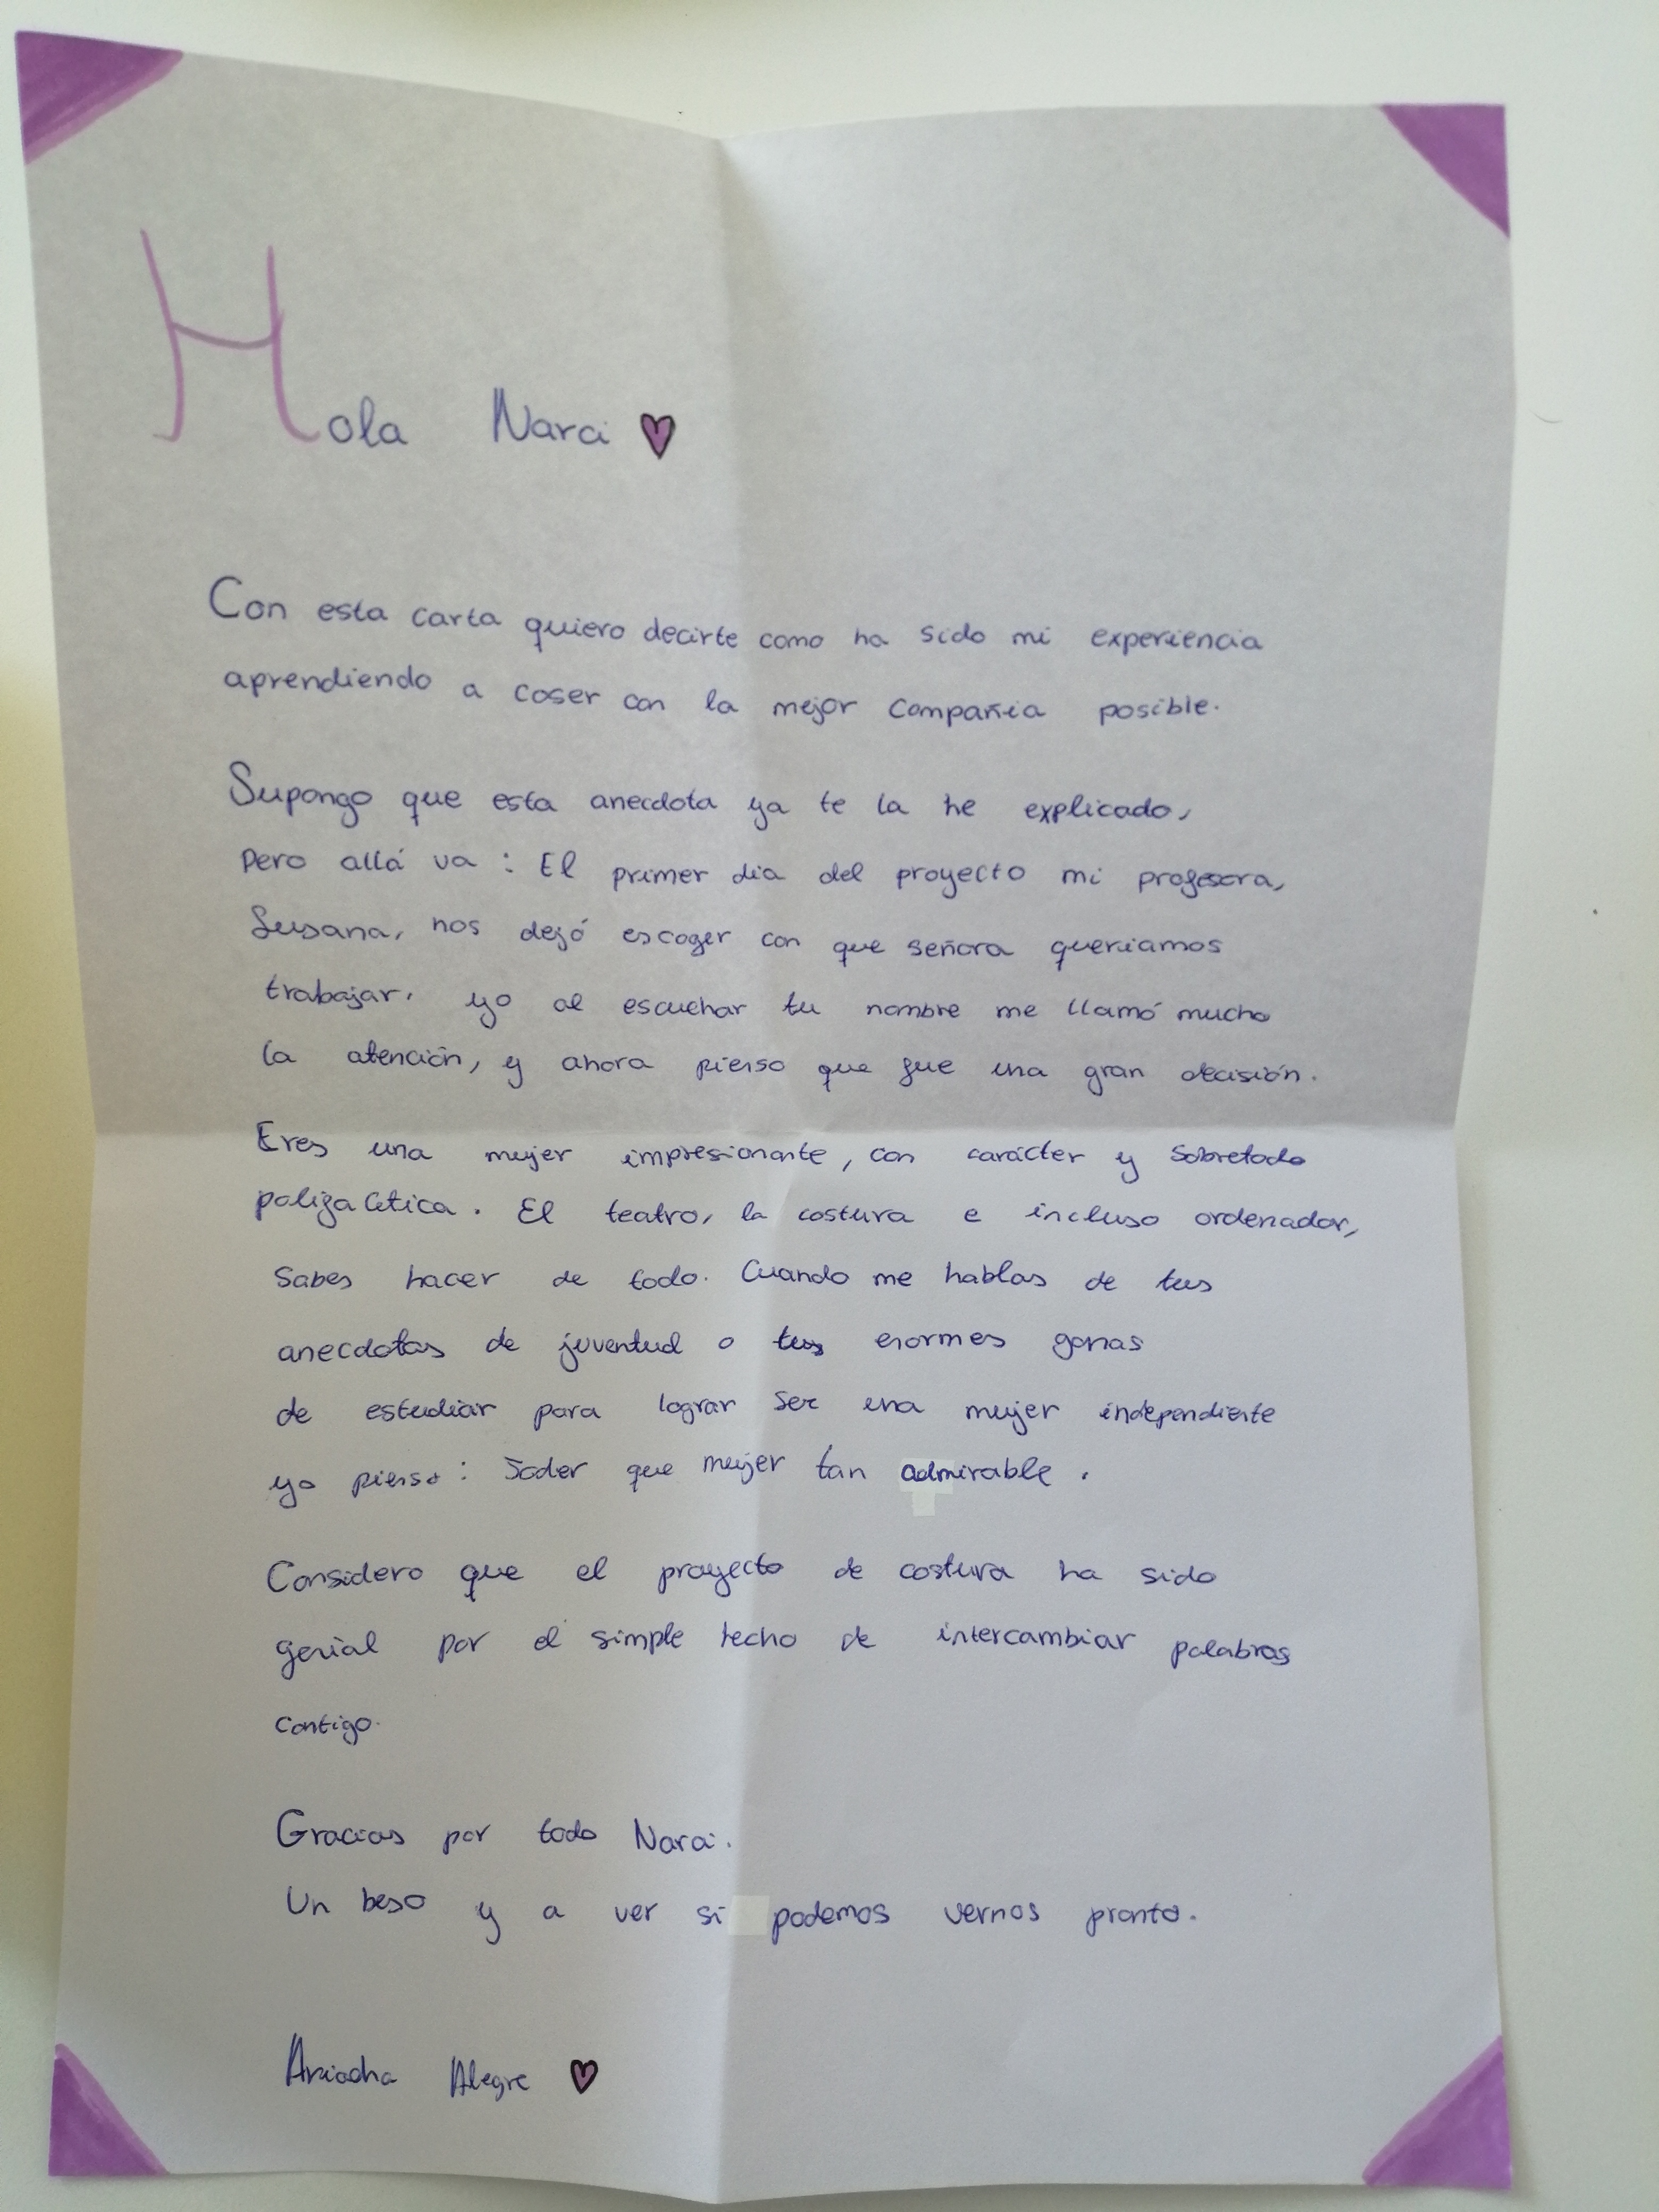 Hola Nara ♥
Con esta carta quiero decirte como ha sido mi experiencia
aprendiendo a coser con la mejor compañia posible.
Supongo que esta anecdota ya te la he explicado,
pero allá va : El primer dia del proyecto mi profesora,
Susana, nos dejó escoger con que señora queriamos
trabajar, yo al escuchar tu nombre me llamó mucho
la atención, y ahora pienso que fue una gran decisión.
Eres una mujer impresionante, con carácter y sobretodo
polifacética. El teatro, la costura e incluso ordenador,
sabes hacer de todo. Cuando me hablas de tus
anecdotas de juventud o tus enormes ganas
de estudiar para lograr ser una mujer independiente
yo pienso : Joder que mujer tan admirable.
Considero que el proyecto de costura ha sido
genial por el simple hecho de intercambiar palabras
contigo.
Gracias por todo Nara.
Un beso y a ver si podemos vernos pronto.
Ariadna Alegre ♥